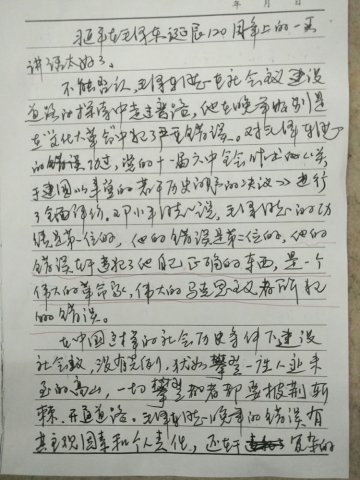 年 月 日
习近平在毛泽东诞辰120周年上的一页
讲话太好了。
不能否认,毛泽东同志在社会主义建设
道路的探索中走过弯路,他在晚年特别是
在"文化大革命"中犯了严重错误。对毛泽东同志
的错误,党的十一届六中全会作出的《关
于建国以来党的若干历史问题的决议》进行
了全面评价。邓小平同志说,毛泽东同志的功
绩是第一位的,他的错误是第二位的,他的
错误在于违犯了他自己正确的东西,是一个
伟大的革命家,伟大的马克思主义者所犯
的错误。
在中国这样的社会历史条件下建设
社会主义,没有先例,犹如攀登一座人迹未
至的高山,一切攀登者都要披荆斩
棘、开通道路。毛泽东同志晚年的错误有
其主观因素和个人责任,还在于复杂的